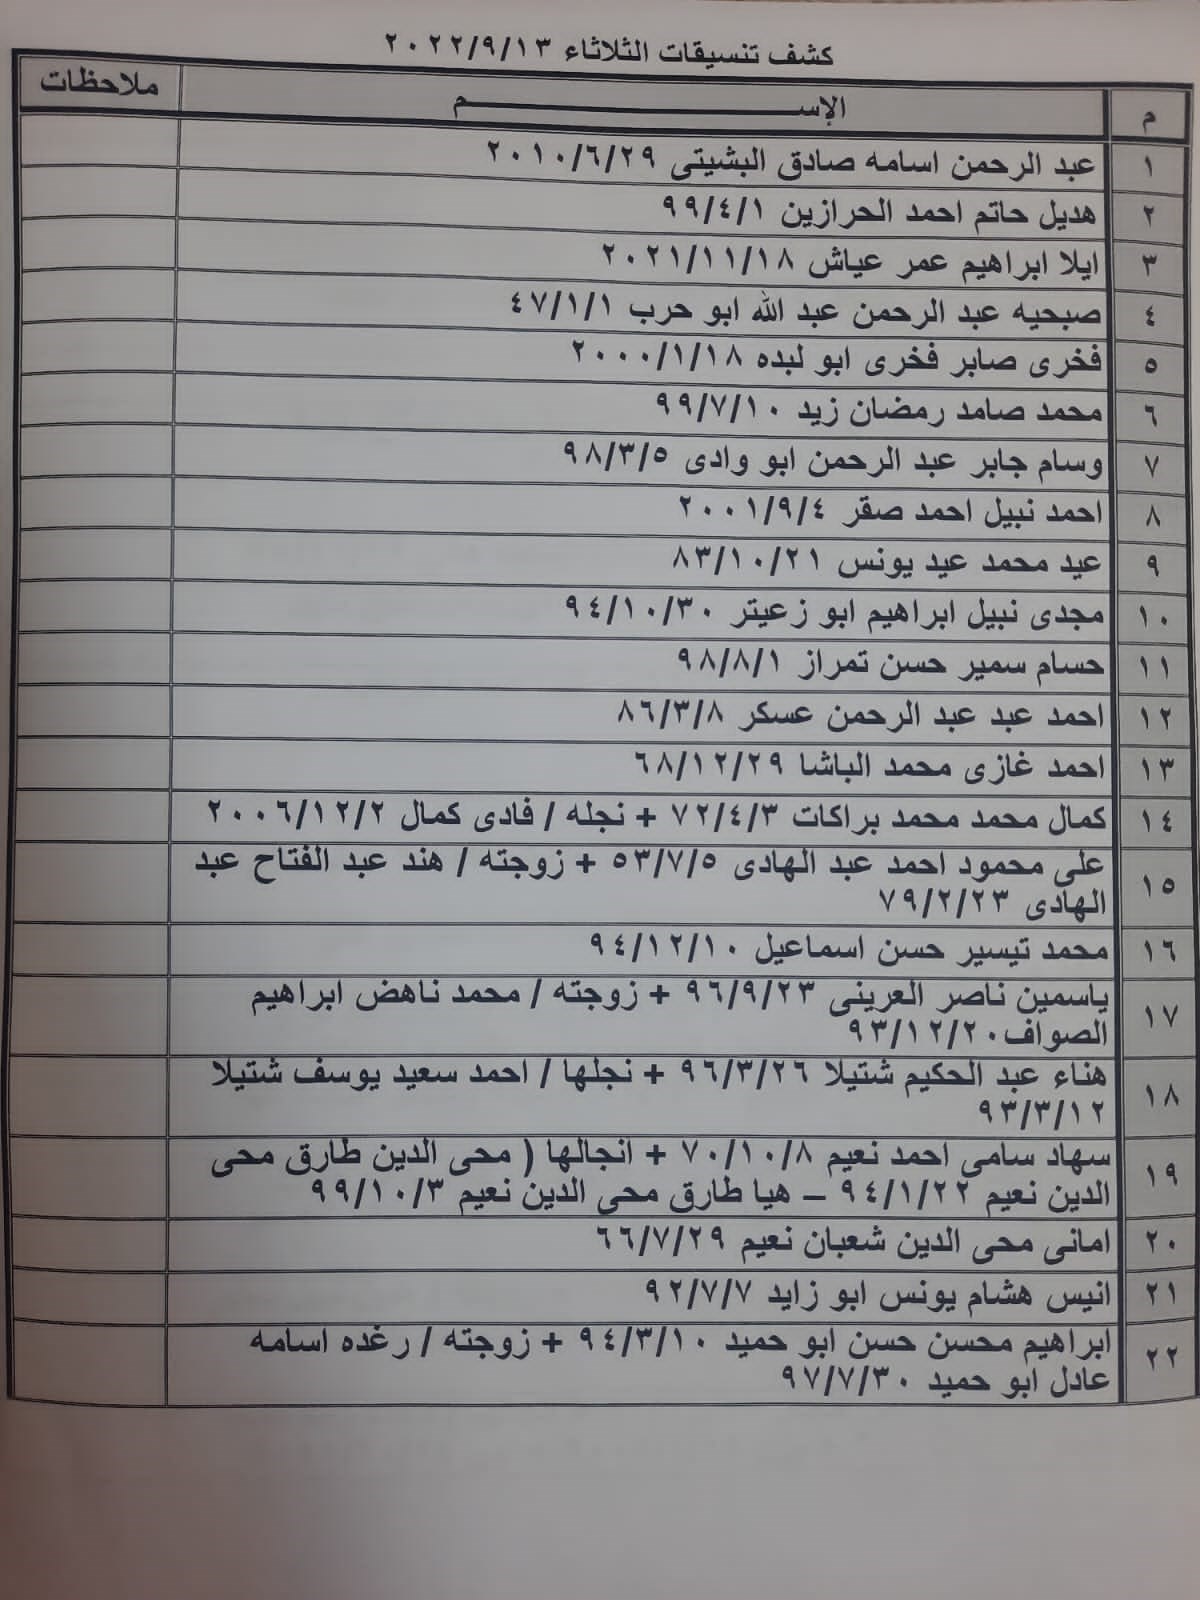 كشف تنسيقات الثلاثاء ٢٠٢٢/٩/١٣
م الإســـــــــــــــــــــم ملاحظات
١ عبد الرحمن اسامه صادق البشيتى ٢٠١٠/٦/٢٩
٢ هديل حاتم احمد الحرازين ٩٩/٤/١
٣ ايلا ابراهيم عمر عياش ٢٠٢١/١١/١٨
٤ صبحيه عبد الرحمن عبد الله ابو حرب ٤٧/١/١
٥ فخرى صابر فخرى ابو لبده ٢٠٠٠/١/١٨
٦ محمد صامد رمضان زيد ٩٩/٧/١٠
٧ وسام جابر عبد الرحمن ابو وادى ٩٨/٣/٥
٨ احمد نبيل احمد صقر ٢٠٠١/٩/٤
٩ عيد محمد عيد يونس ٨٣/١٠/٢١
١٠ مجدى نبيل ابراهيم ابو زعيتر ٩٤/١٠/٣٠
١١ حسام سمير حسن تمراز ٩٨/٨/١
١٢ احمد عبد عبد الرحمن عسكر ٨٦/٣/٨
١٣ احمد غازى محمد الباشا ٦٨/١٢/٢٩
١٤ كمال محمد محمد براكات ٧٢/٤/٣ + نجله / فادى كمال ٢٠٠٦/١٢/٢
١٥ على محمود احمد عبد الهادى ٥٣/٧/٥ + زوجته / هند عبد الفتاح عبد
الهادى ٧٩/٢/٢٣
١٦ محمد تيسير حسن اسماعيل ٩٤/١٢/١٠
١٧ ياسمين ناصر العرينى ٩٦/٩/٢٣ + زوجته / محمد ناهض ابراهيم
الصواف٩٣/١٢/٢٠
١٨ هناء عبد الحكيم شتيلا ٩٦/٣/٢٦ + نجلها / احمد سعيد يوسف شتيلا
٩٣/٣/١٢
١٩ سهاد سامى احمد نعيم ٧٠/١٠/٨ + انجالها ( محى الدين طارق محى
الدين نعيم ٩٤/١/٢٢ – هيا طارق محى الدين نعيم ٩٩/١٠/٣
٢٠ امانى محى الدين شعبان نعيم ٦٦/٧/٢٩
٢١ انيس هشام يونس ابو زايد ٩٢/٧/٧
٢٢ ابراهيم محسن حسن ابو حميد ٩٤/٣/١٠ + زوجته / رغده اسامه
عادل ابو حميد ٩٧/٧/٣٠